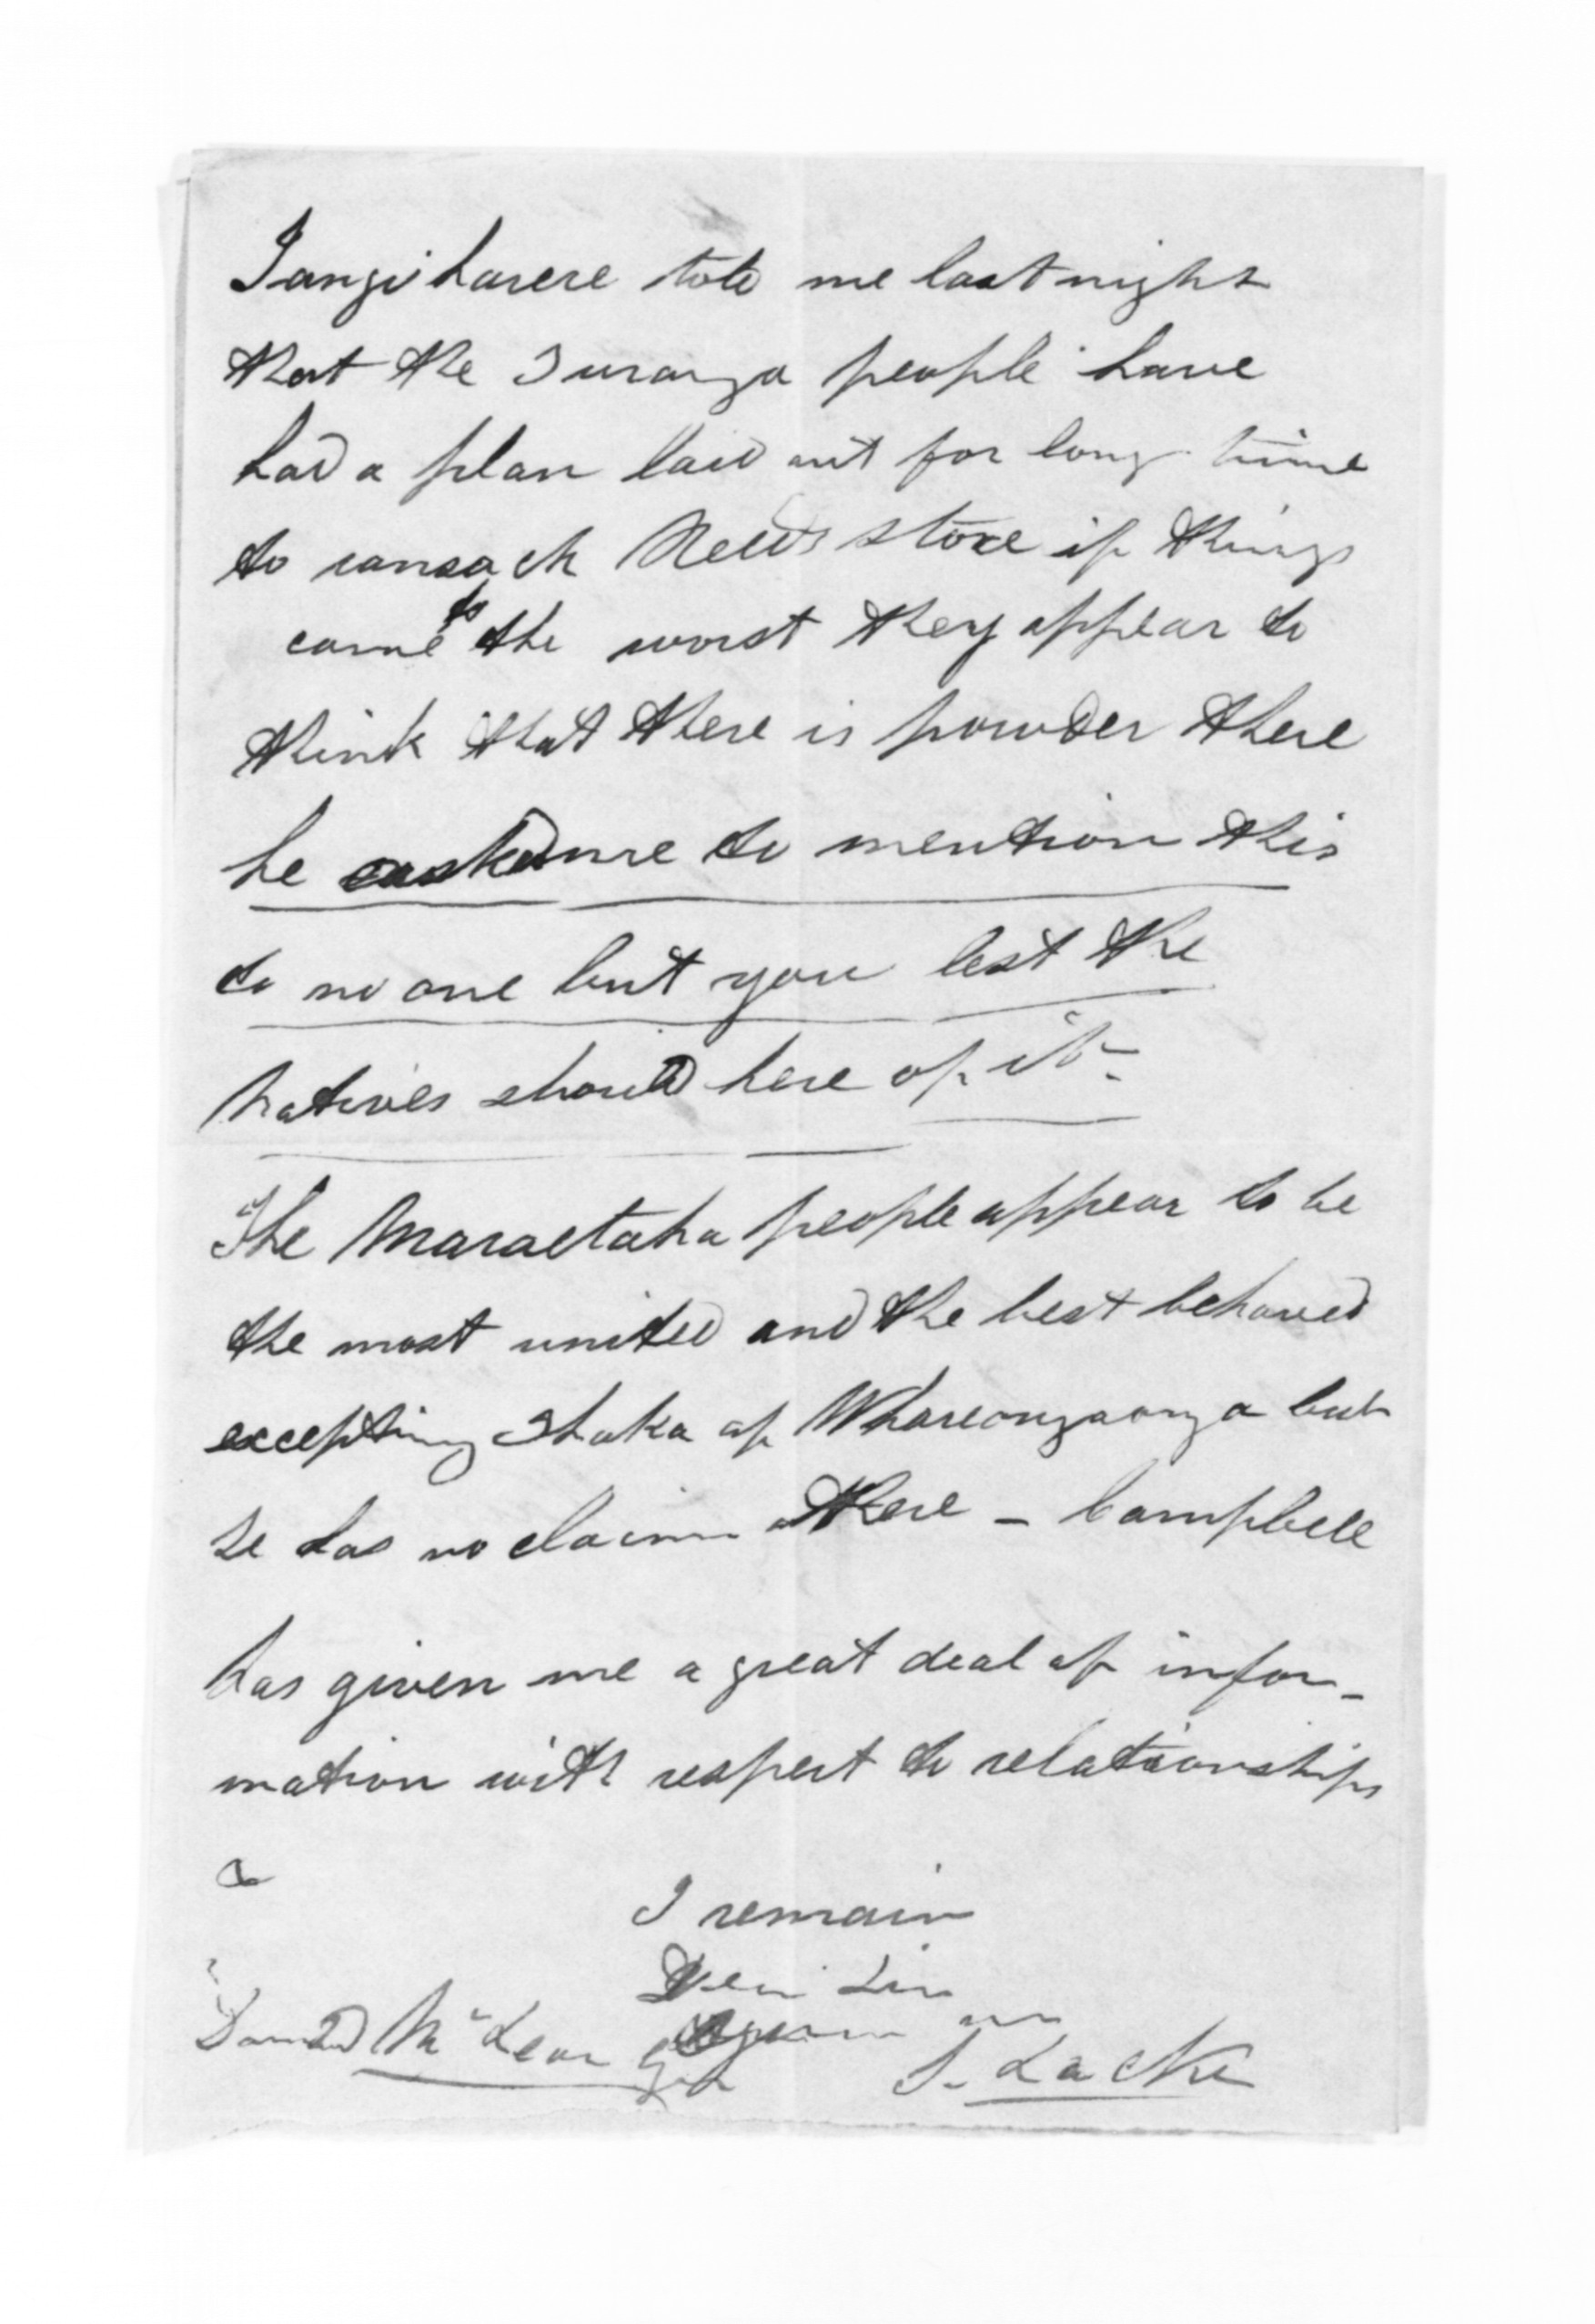 Tangiharere told me last night
that the Turanga people have
had a plan laid out for long time
to ransack Reeds store if things
came to the worst they appear to
think that there is powder there
he asked me to mention this
to no one but you lest the
Natives should here of it.
The Maraetaha people appear to be
the most united and the best behaved
excepting Ihaka of Whareongaonga but
he has no claim there - Campbell
has given me a great deal of infor-
mation with respect to relationships
&c
I remain
Dear Sir
Donald McLean Esq
S. Locke